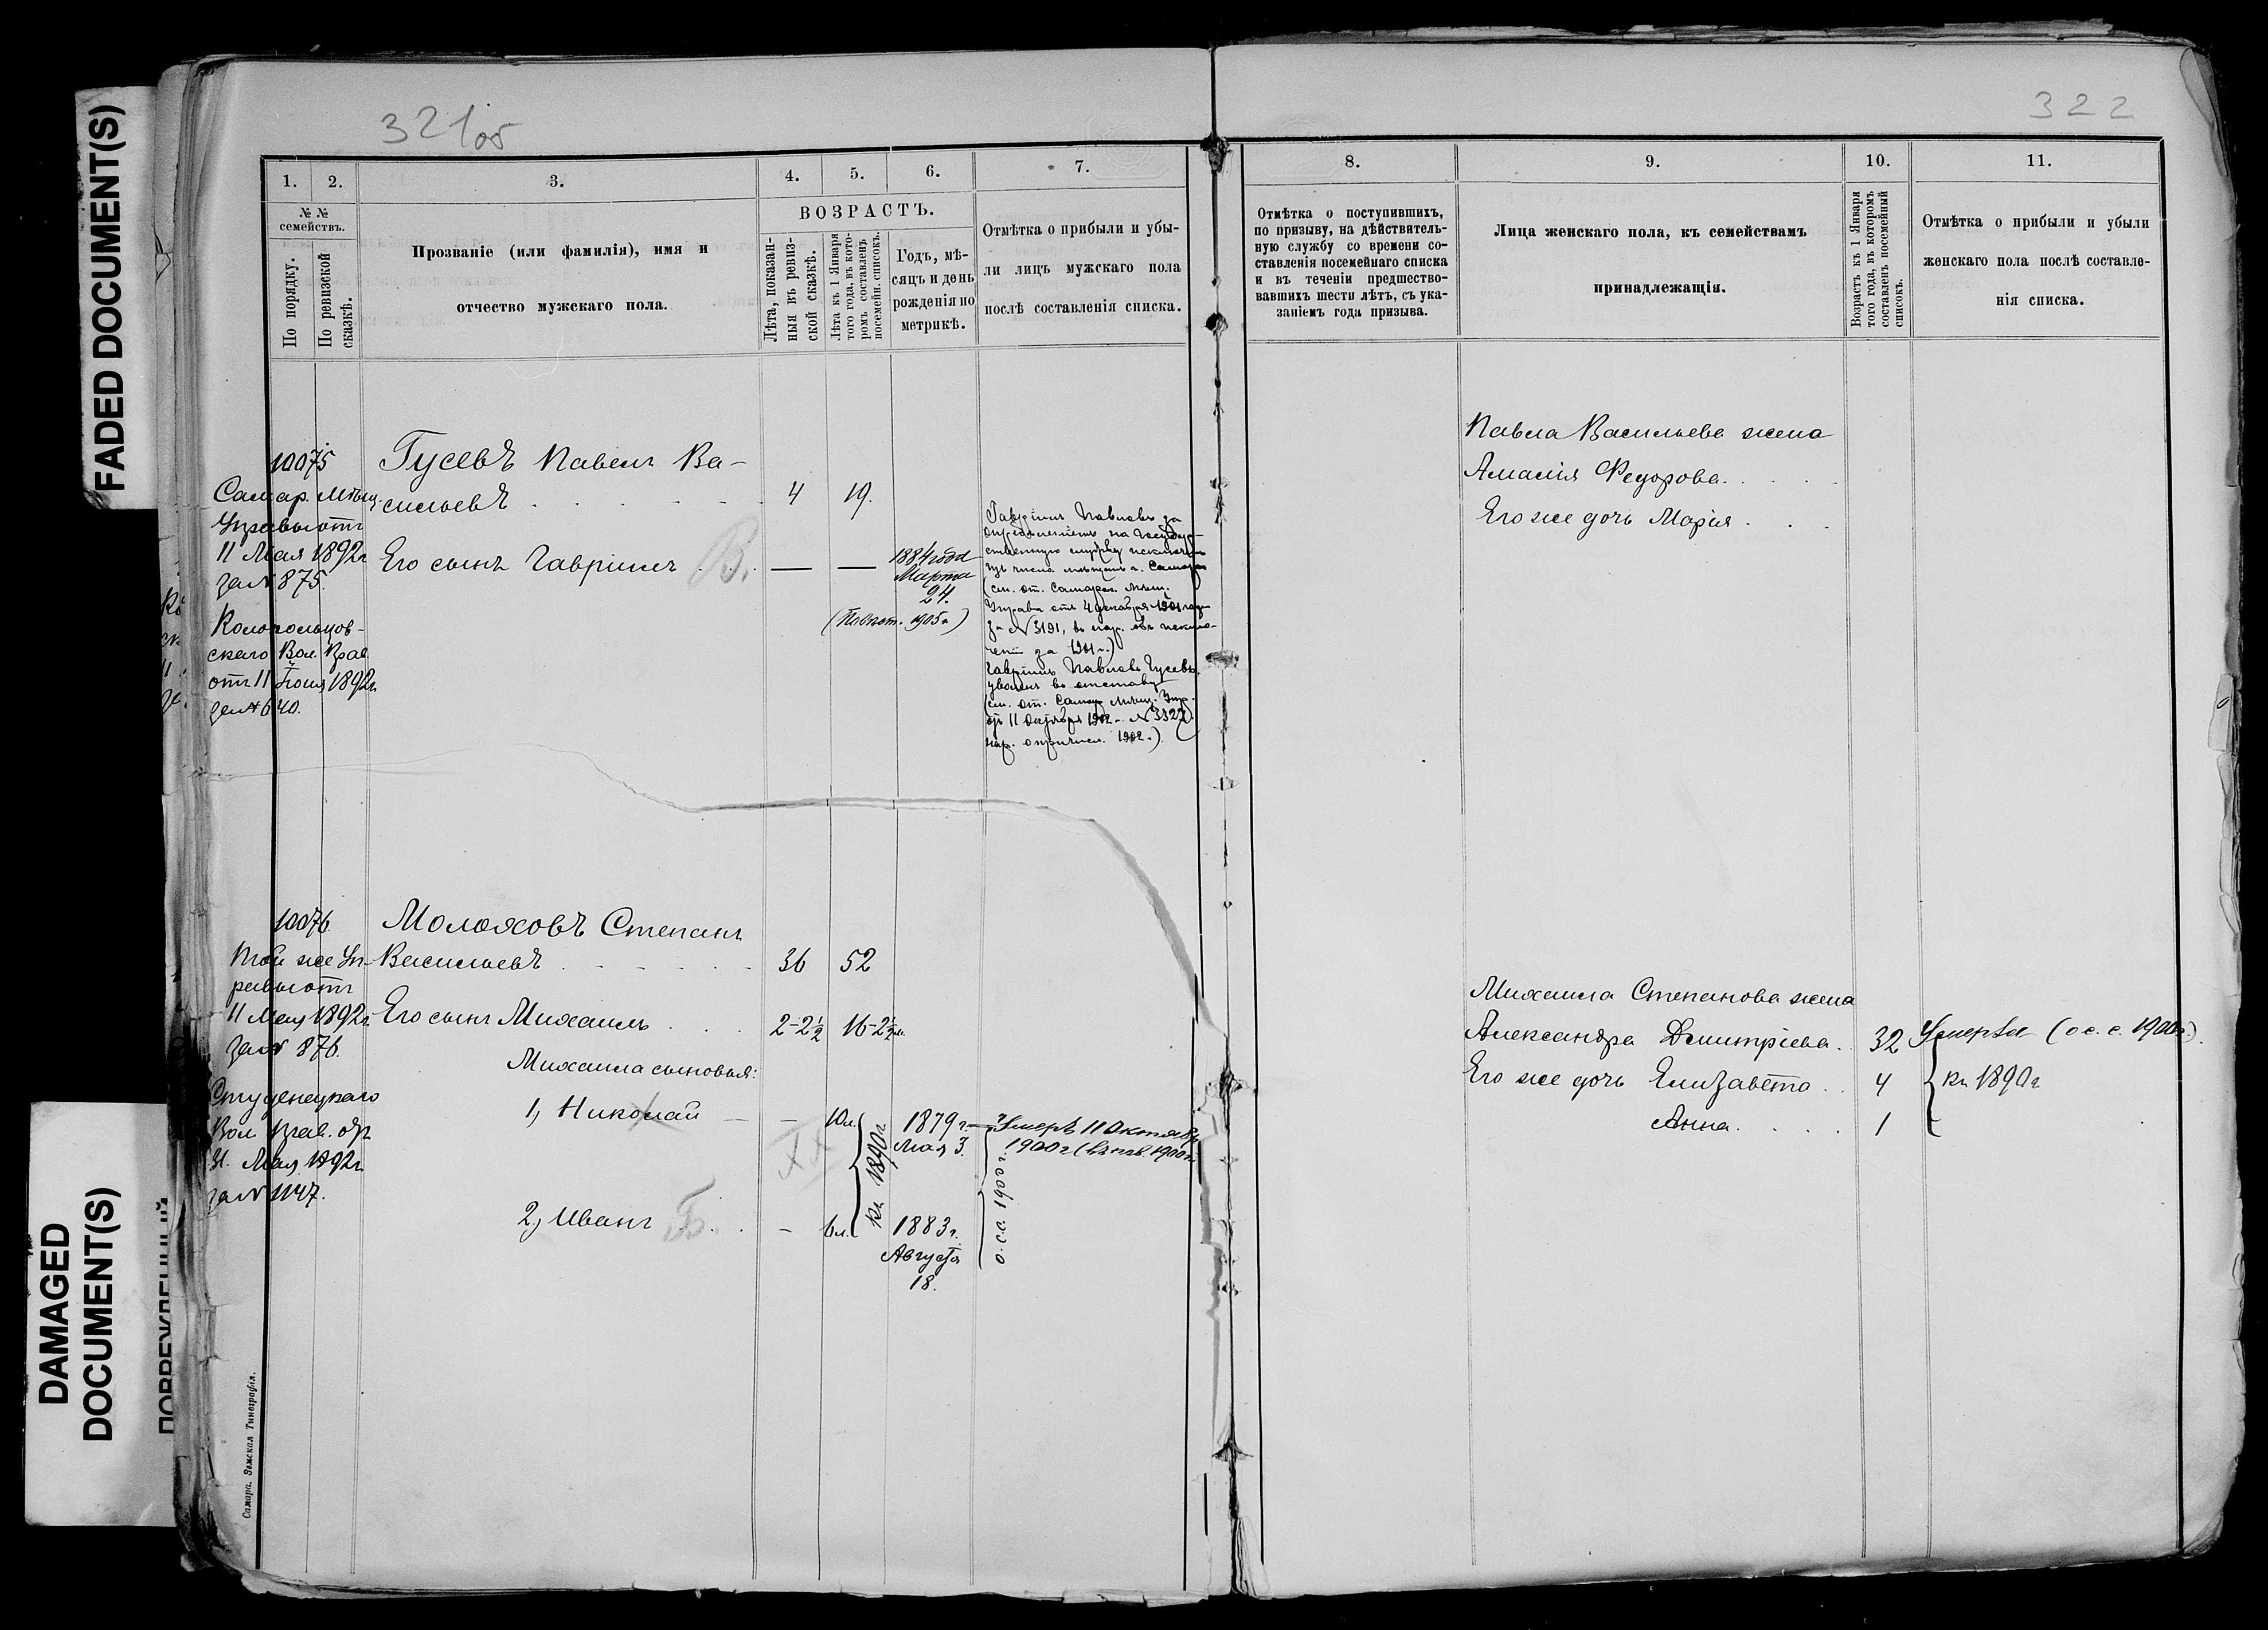 FADED DOCUMENT(S)
DAMAGED
DOCUMENT(S)
321об
322
1.
2.
3.
4.
5.
6.
7.
№ №
семействъ.
По порядку.
По ревизской
сказкѣ.
Прозваніе (или фамилія), имя и
отчество мужскаго пола.
ВОЗРАСТЪ.
Лѣта, показан-
ныя въ ревиз-
ской сказкѣ.
Лѣта къ 1 Января
того года, въ кото-
ромъ составленъ
посемейн. списокъ.
Годъ, мѣ-
сяцъ и день
рожденія по
метрикѣ.
Отмѣтка о прибыли и убы-
ли лицъ мужскаго пола
послѣ составленія списка.
10075
Самар. Мѣщ.
Управы отъ
11 Мая 1892г
за № 875.
Колокольцов-
скаго Вол. Прав.
отъ 11 Іюня 1892г.
за № 640.
Гусевъ Павелъ Ва-
сильевъ
4
19.
Его сынъ Гавріилъ
В.
1884 года
Марта
24.
1905г)
Гавріилъ Павловъ за
опредѣленіемъ на Государ-
ственную службу исключенъ
изъ числа мѣщанъ г. Самары
(см. от. Самарск. Мѣщ.
Управы отъ 4 декабря 1901 года
за № 3191, въ
за 1901 г.)
Гавріилъ Павловъ Гусевъ
уволенъ въ отставку
(см. от. Самар. Мѣщ. Упр.
отъ 11 Октября 1902 г. № 3327
1902 г.)
10076
Той же Уп-
равы отъ
11 Мая 1892г.
за № 876.
Студенецкаго
Вол. Прав. отъ
31. Мая 1892г.
за № 1147.
Молоховъ Степанъ
Васильевъ
36
52
Его сынъ Михаилъ
2-2½
16-2½м.
Михаила сыновья:
1, Николай
10л.
1879 г.
Мая 3.
Умеръ 11 Октября
1900 г.
къ 1890г.
о. с. с. 1900 г.
2, Иванъ
Б.
6л.
1883г.
Августа
18.
Самара. Земская Типографія.
8.
9.
10.
11.
Отмѣтка о поступившихъ,
по призыву, на дѣйствитель-
ную службу со времени со-
ставленія посемейнаго списка
и въ теченіи предшество-
вавшихъ шести лѣтъ, съ ука-
заніемъ года призыва.
Лица женскаго пола, къ семействамъ
принадлежащія.
Возрастъ къ 1 Января
того года, въ которомъ
составленъ посемейный
списокъ.
Отмѣтка о прибыли и убыли
женскаго пола послѣ составле-
нія списка.
Павла Васильева жена
Амалія Федорова.
Его же дочь Марія
Михаила Степанова жена
Александра Дмитріева.
32
Умерла (о с. с. 1900г.)
Его же дочь Елизавета
4
къ 1890г
Анна
1